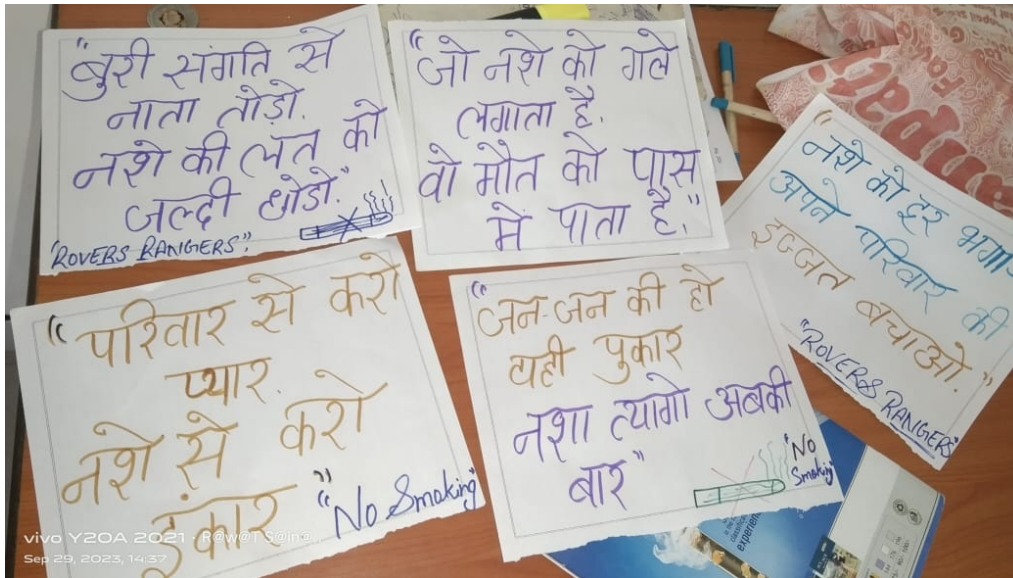 "बुरी संगति से
नाता तोड़ो.
नशे की लत को
जल्दी छोडो."
"ROVERS RANGERS"
"जो नशे को गले
लगाता है.
वो मौत को पास
मे पाता है."
"नशे को दूर भगा
अपने परिवार की
इज्जत बचाओ."
"ROVERS RANGERS"
"परिवार से करो
प्यार.
नशे से करो
इंकार"
"No Smoking"
"जन-जन की हो
यही पुकार
नशा त्यागो अबकी
बार"
"No
Smoking"
experien
vivo Y20A 2021 · R@w@T S@in@
Sep 29, 2023, 14:37